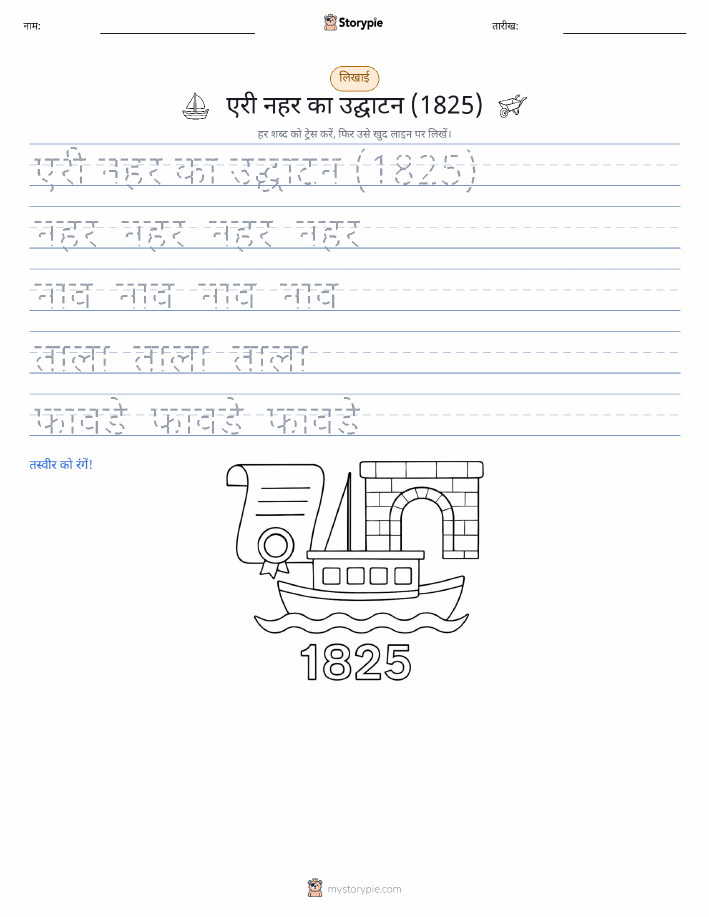 नाम:
Storypie
तारीख:
लिखाई
एरी नहर का उद्घाटन (1825)
हर शब्द को ट्रेस करें, फिर उसे खुद लाइन पर लिखें।
एरी नहर का उद्घाटन (1825)
नहर नहर नहर नहर
नाव नाव नाव नाव
ताला ताला ताला
फावड़े फावड़े फावड़े
तस्वीर को रंगें!
1825
mystorypie.com